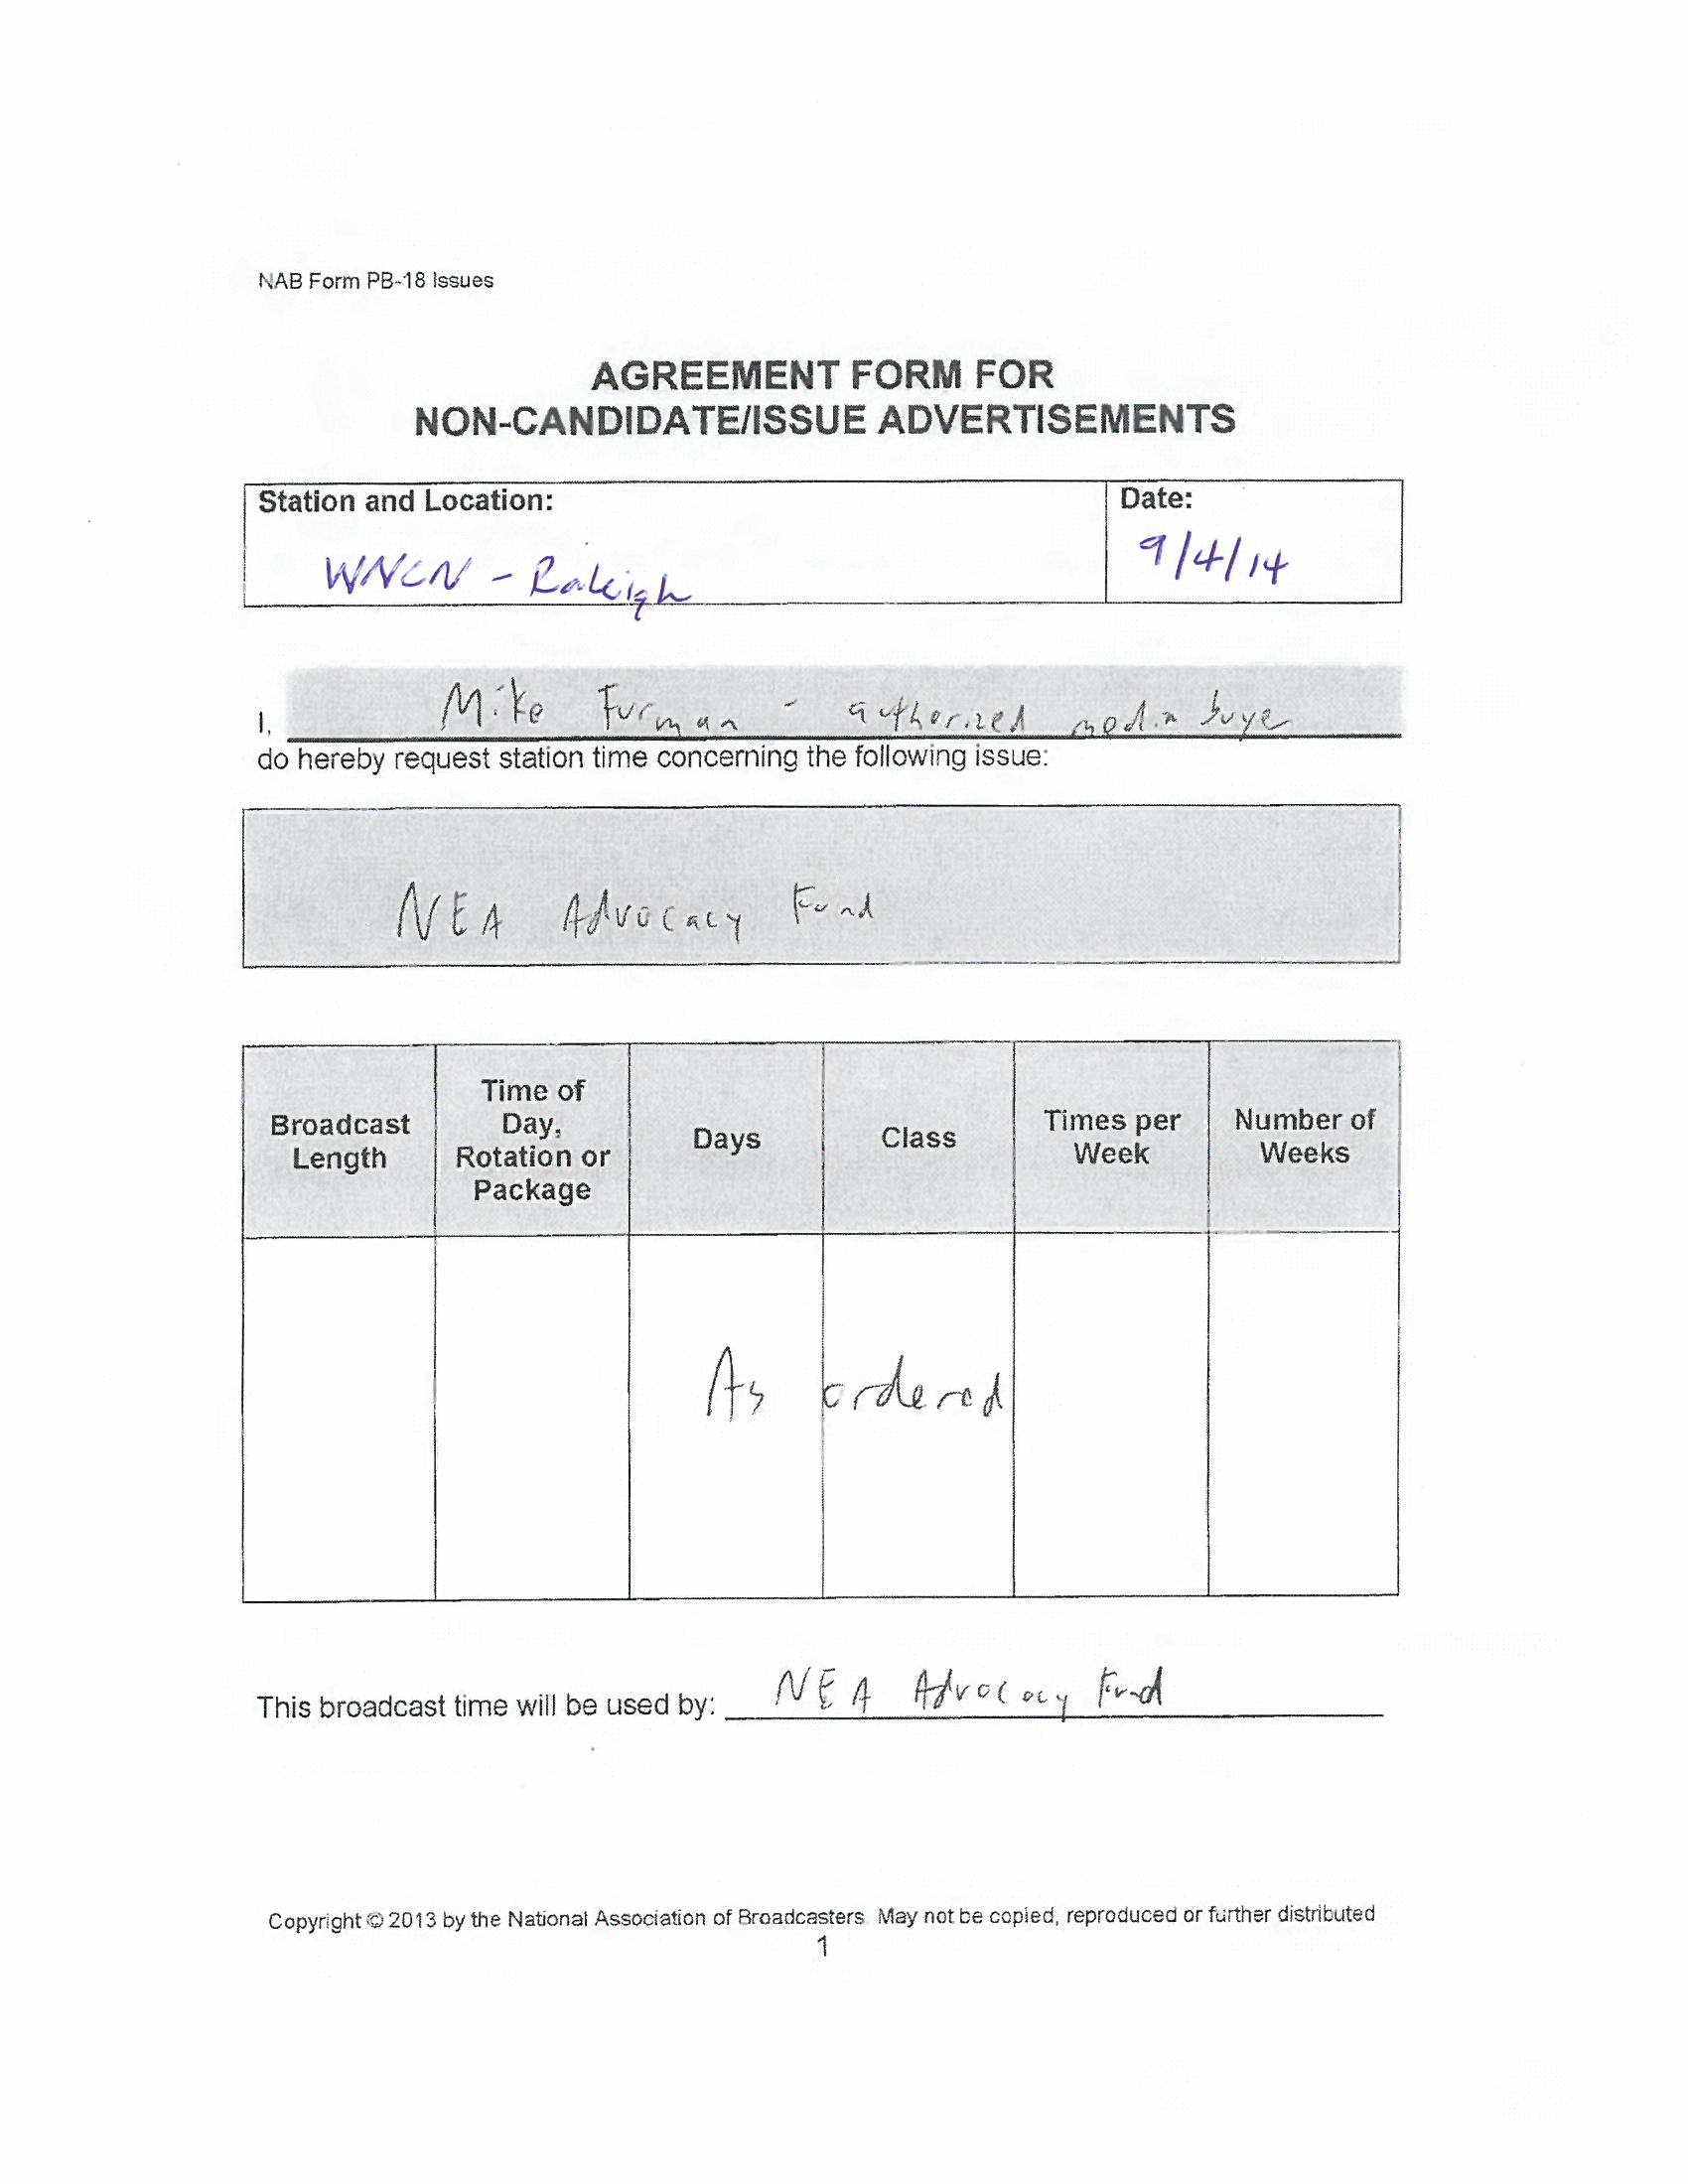 NAB Form PB-18 Issues
AGREEMENT FORM FOR
NON-CANDIDATE/ISSUE ADVERTISEMENTS
Station and Location:
Date:
WNCN - Raleigh
9/4/14
I, Mike Furman - authorized media buyer
do hereby request station time concerning the following issue:
NEA Advocacy Fund
Broadcast Length
Time of Day, Rotation or Package
Days
Class
Times per Week
Number of Weeks
As ordered
This broadcast time will be used by: NEA Advocacy Fund
Copyright © 2013 by the National Association of Broadcasters. May not be copied, reproduced or further distributed
1